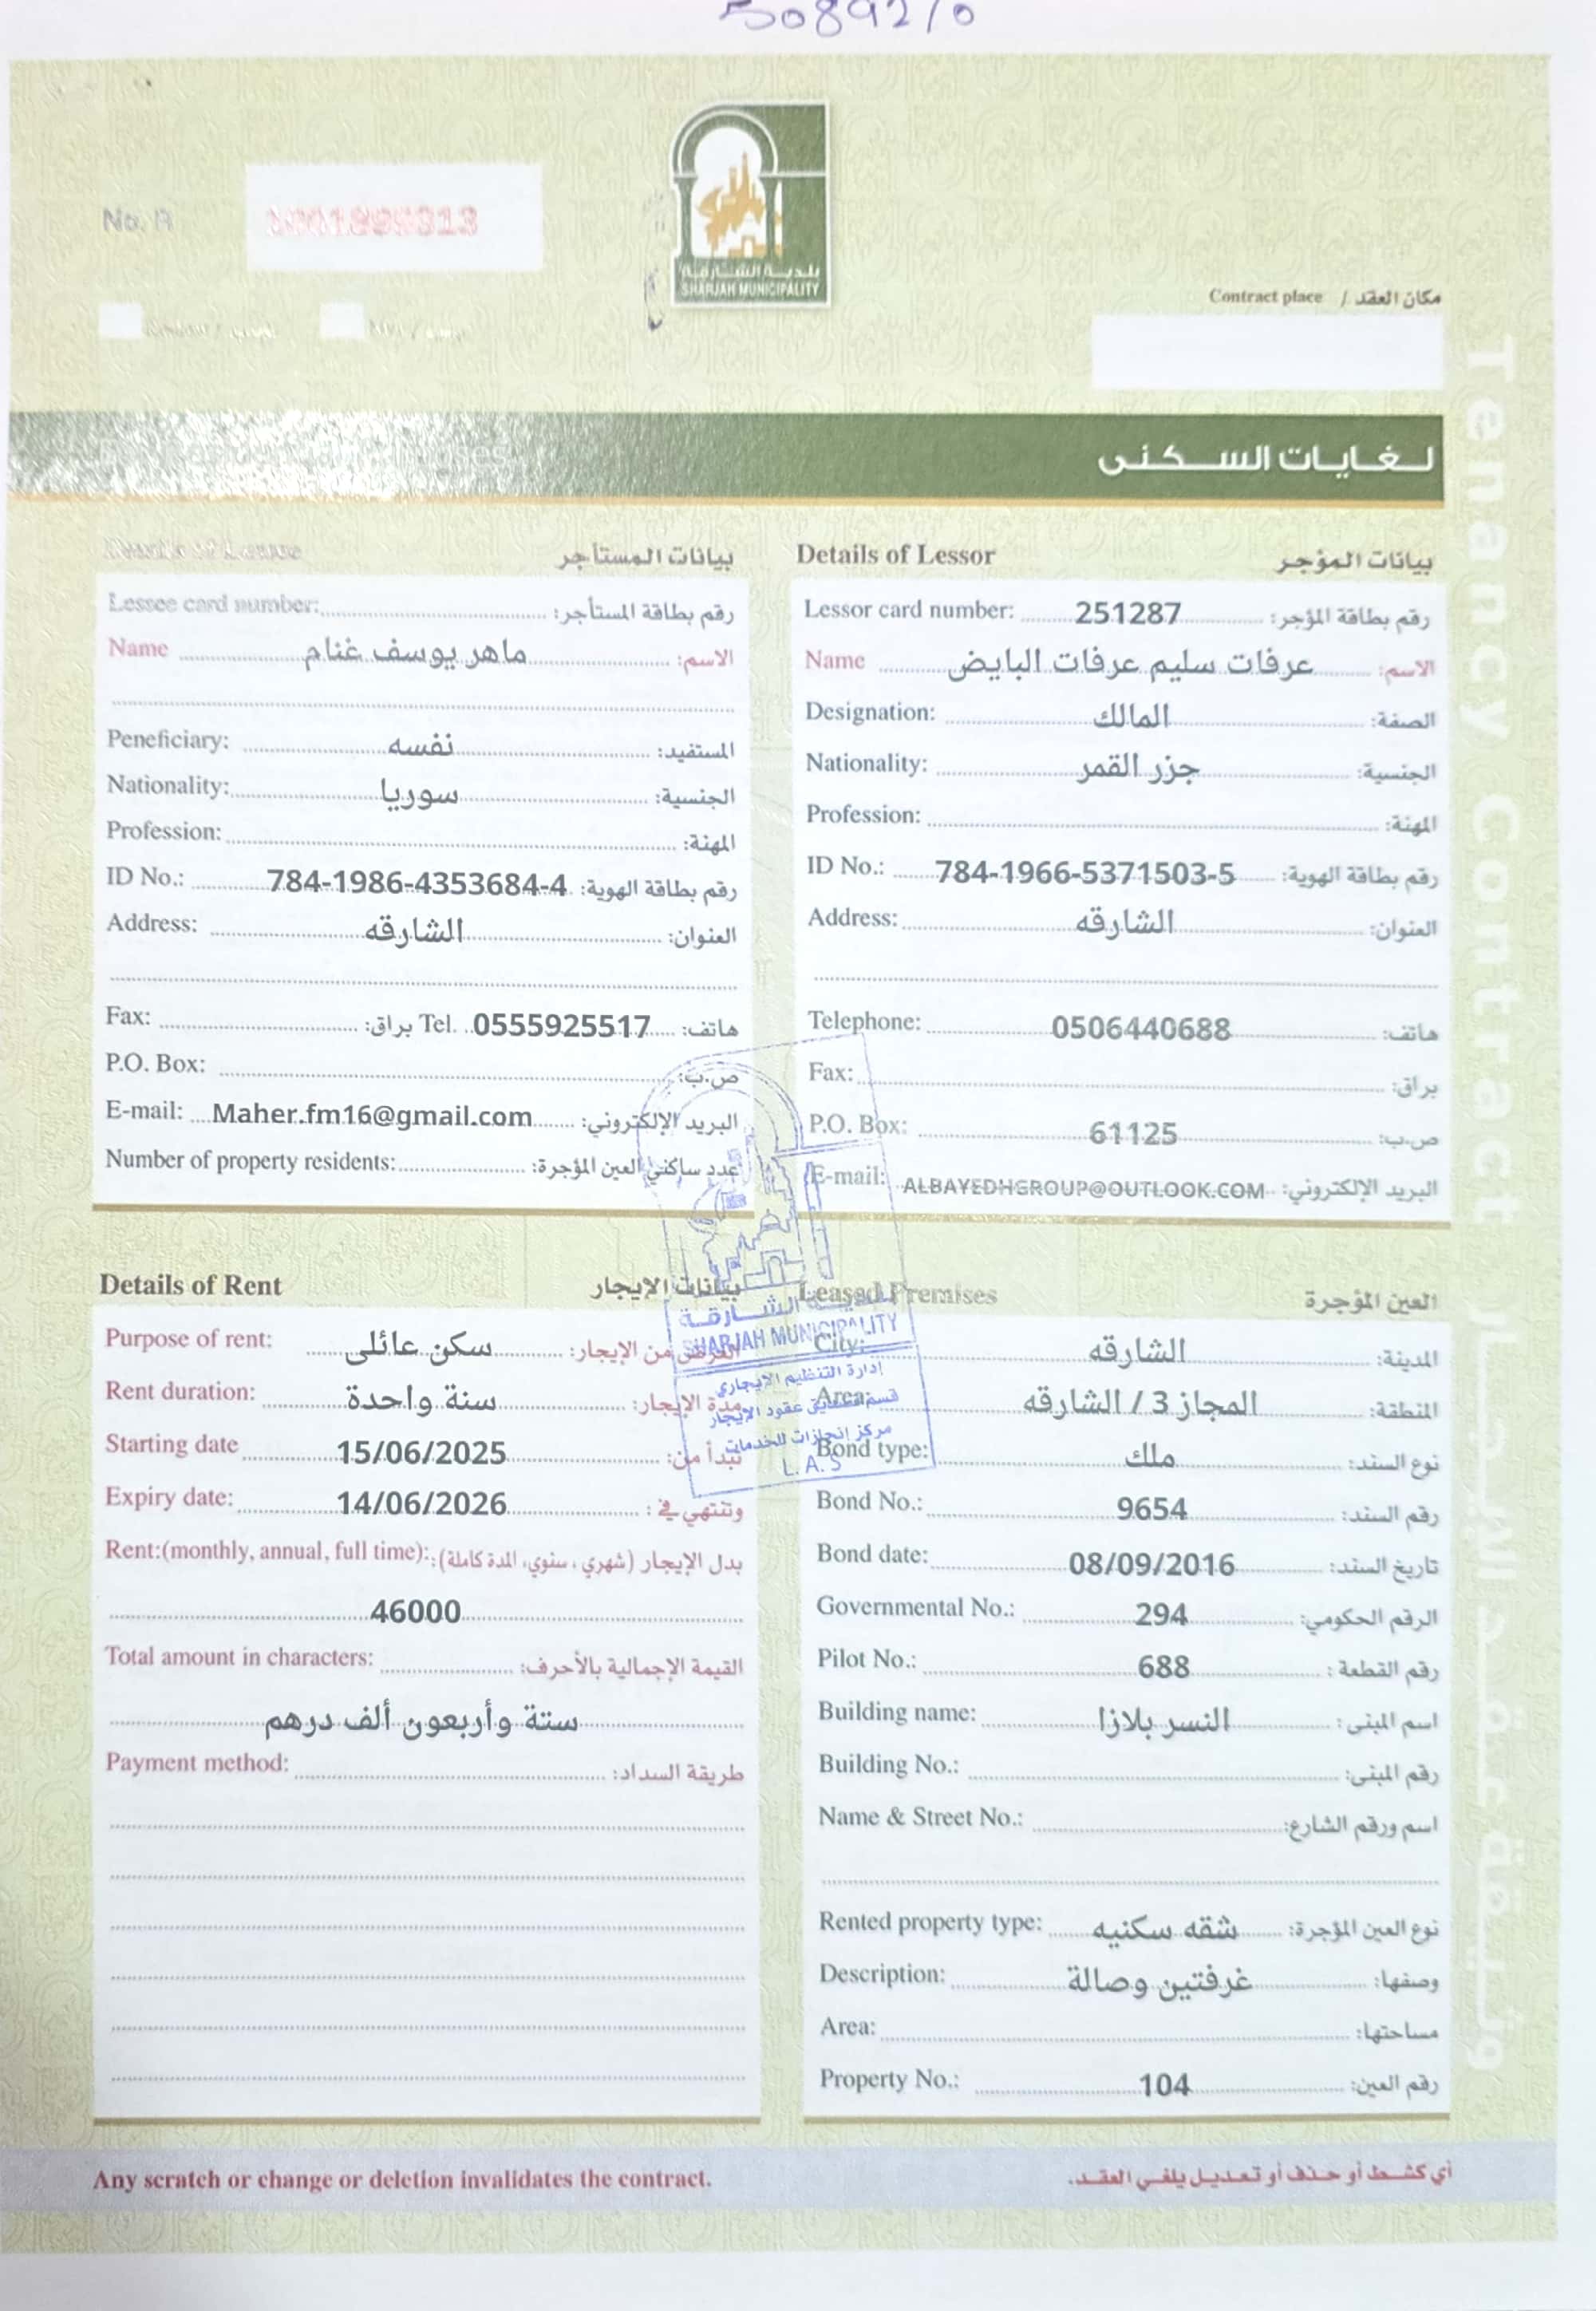 50892/0
No. A
بلدية الشارقة
SHARJAH MUNICIPALITY
Contract place / مكان العقد
لغايات السكنى
Tenancy Contract
بيانات المستأجر
Lessee card number: رقم بطاقة المستأجر:
Name ماهر يوسف غنام الاسم:
Peneficiary: نفسه المستفيد:
Nationality: سوريا الجنسية:
Profession: المهنة:
ID No.: 784-1986-4353684-4 رقم بطاقة الهوية:
Address: الشارقه العنوان:
Fax: براق: Tel. 0555925517 هاتف:
P.O. Box: ص.ب:
E-mail: Maher.fm16@gmail.com البريد الإلكتروني:
Number of property residents: عدد ساكني العين المؤجرة:
Details of Lessor بيانات المؤجر
Lessor card number: 251287 رقم بطاقة المؤجر:
Name عرفات سليم عرفات البايض الاسم:
Designation: المالك الصفة:
Nationality: جزر القمر الجنسية:
Profession: المهنة:
ID No.: 784-1966-5371503-5 رقم بطاقة الهوية:
Address: الشارقه العنوان:
Telephone: 0506440688 هاتف:
Fax: براق:
P.O. Box: 61125 ص.ب:
E-mail: ALBAYEDHGROUP@OUTLOOK.COM البريد الإلكتروني:
Details of Rent بيانات الإيجار
Purpose of rent: سكن عائلى الغرض من الإيجار:
Rent duration: سنة واحدة مدة الإيجار:
Starting date 15/06/2025 تبدأ من:
Expiry date: 14/06/2026 وتنتهي في :
Rent:(monthly, annual, full time): بدل الإيجار (شهري، سنوي، المدة كاملة):
46000
Total amount in characters: القيمة الإجمالية بالأحرف:
ستة وأربعون ألف درهم
Payment method: طريقة السداد:
Leased Premises العين المؤجرة
City: الشارقه المدينة:
Area: المجاز 3 / الشارقه المنطقة:
Bond type: ملك نوع السند:
Bond No.: 9654 رقم السند:
Bond date: 08/09/2016 تاريخ السند:
Governmental No.: 294 الرقم الحكومي:
Pilot No.: 688 رقم القطعة :
Building name: النسر بلازا اسم المبنى :
Building No.: رقم المبنى:
Name & Street No.: اسم ورقم الشارع:
Rented property type: شقه سكنيه نوع العين المؤجرة:
Description: غرفتين وصالة وصفها:
Area: مساحتها:
Property No.: 104 رقم العين:
بلدية الشارقة
SHARJAH MUNICIPALITY
إدارة التنظيم الايجاري
قسم تصديق عقود الايجار
مركز إنجازات للخدمات
L.A.S
Any scratch or change or deletion invalidates the contract. أي كشط أو حذف أو تعديل يلغي العقد.